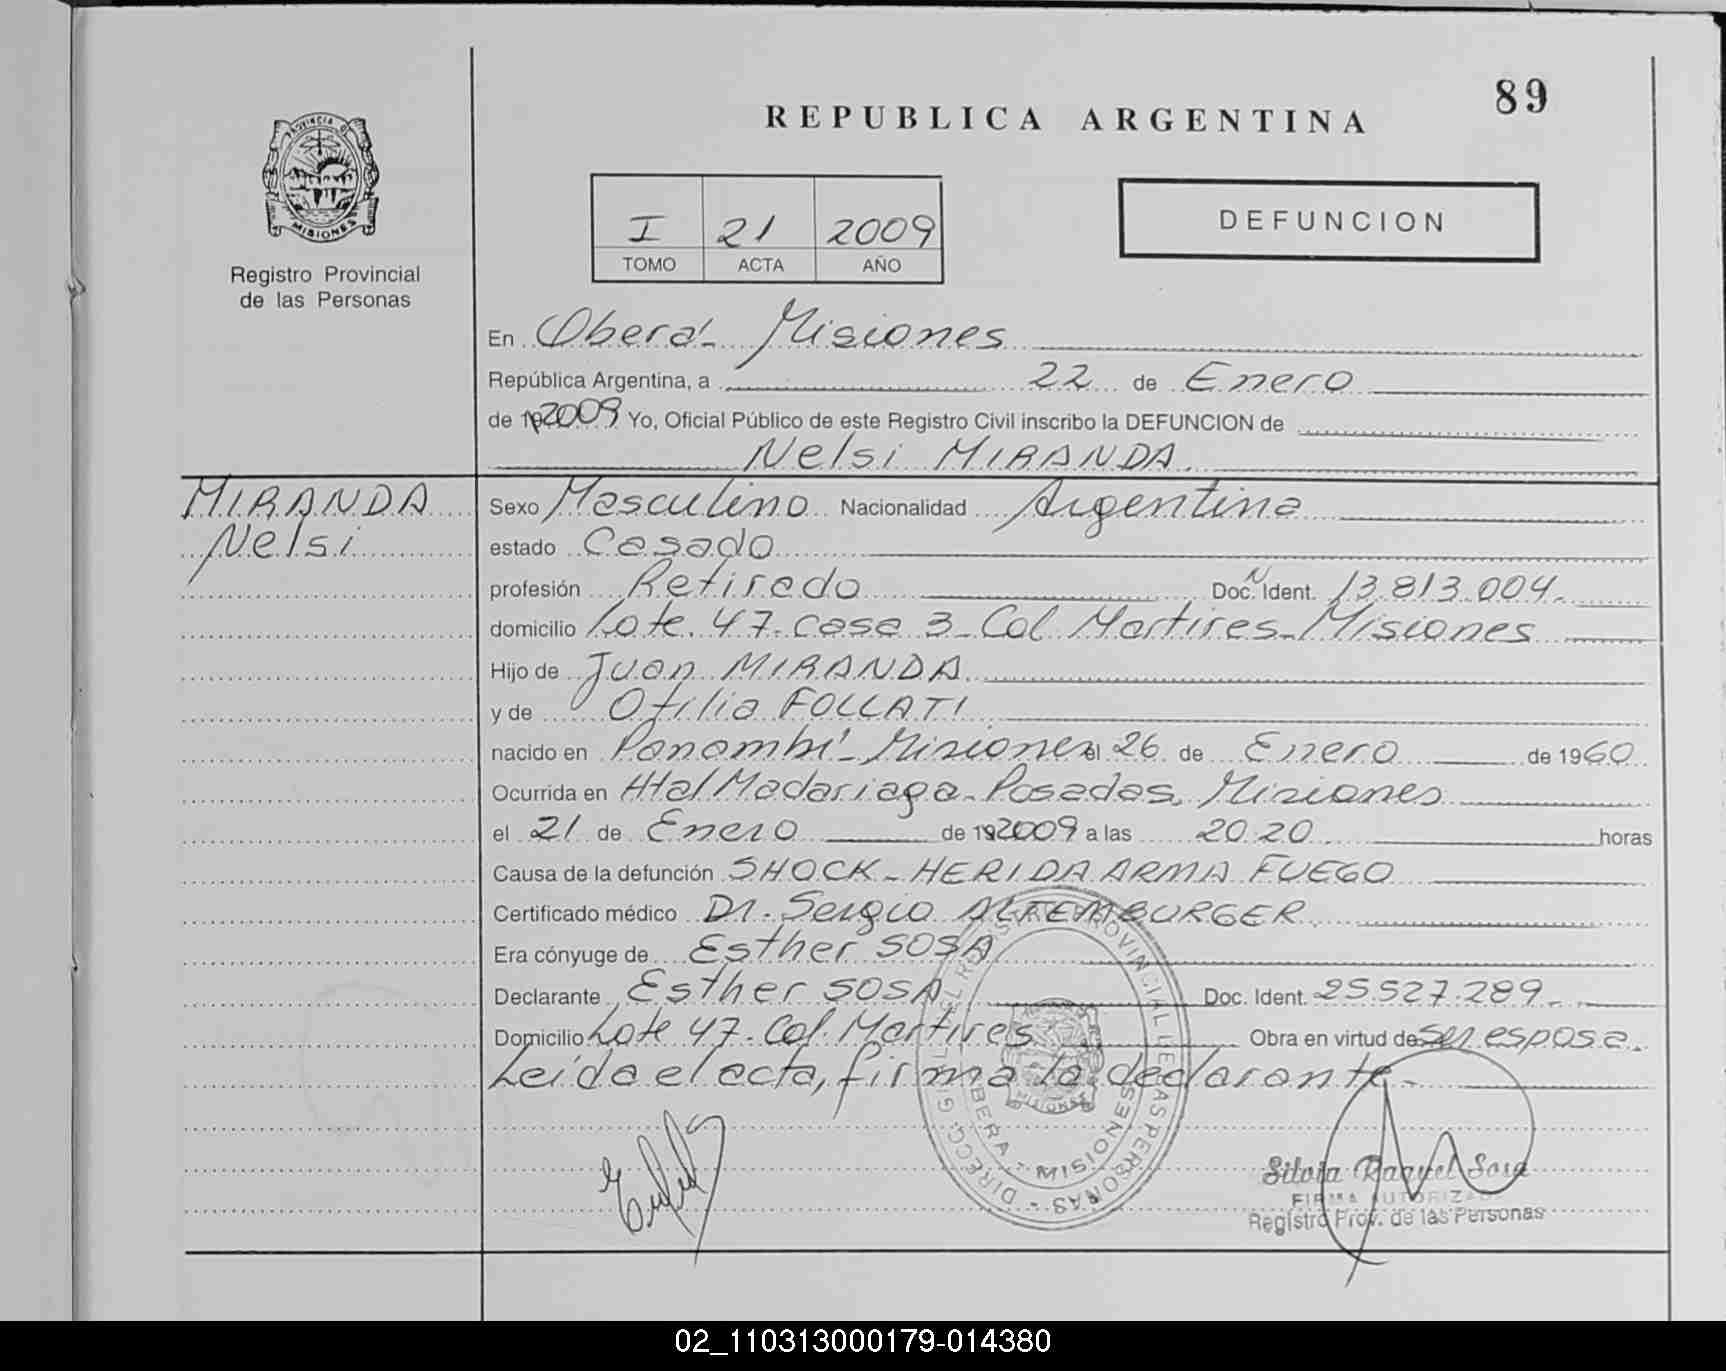 89
REPUBLICA ARGENTINA
PROVINCIA DE
MISIONES
Registro Provincial
de las Personas
I 21 2009
TOMO ACTA AÑO
DEFUNCION
En Oberá - Misiones
República Argentina, a 22 de Enero
de 2009 Yo, Oficial Público de este Registro Civil inscribo la DEFUNCION de
Nelsi MIRANDA
MIRANDA
Nelsi
Sexo Masculino Nacionalidad Argentina
estado Casado
profesión Retirado Doc. N Ident. 13.813.004-
domicilio Lote 47- casa 3- Col Martires- Misiones
Hijo de Juan MIRANDA
y de Ofilia FOLLATI
nacido en Panambí- Misiones el 26 de Enero de 1960
Ocurrida en Htal Madariaga- Posadas, Misiones
el 21 de Enero de 2009 a las 20.20 horas
Causa de la defunción SHOCK - HERIDA ARMA FUEGO
Certificado médico Dr. Sergio ALTEMBURGER
Era cónyuge de Esther SOSA
Declarante Esther SOSA Doc. Ident. 25.527.289-
Domicilio Lote 47- Col. Martires Obra en virtud de ser esposa.
Leída el acta, firma la declarante-
OBERA - MISIONES
Silvia Raquel Sosa
FIRMA AUTORIZADA
Registro Prov. de las Personas
02_110313000179-014380